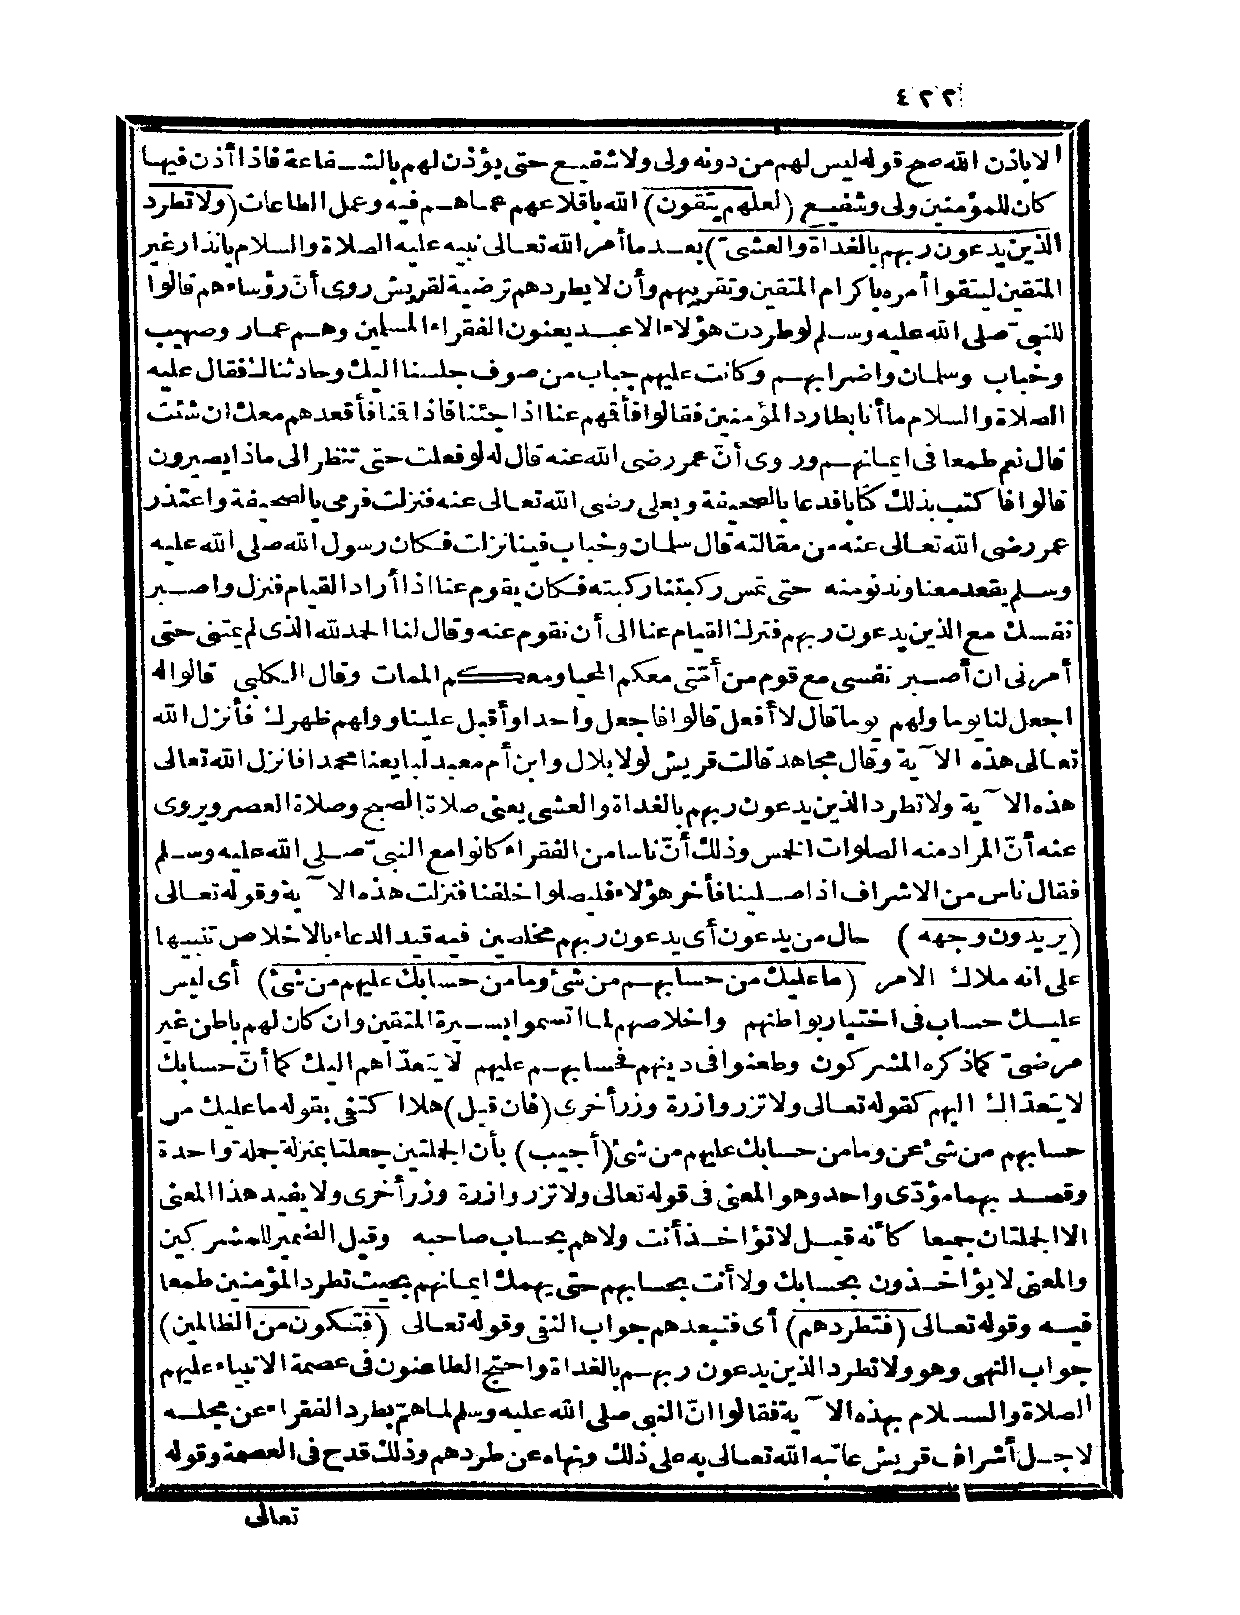 ٤٢٢
الا باذن الله صح قوله ليس لهم من دونه ولى ولا شفيع حتى يؤذن لهم بالشفاعة فاذا أذن فيها
كان للمؤمنين ولى وشفيع (لعلهم يتقون) الله باقلاعهم عما هم فيه وعمل الطاعات (ولا تطرد
الذين يدعون ربهم بالغداة والعشىّ) بعد ما أمر الله تعالى نبيه عليه الصلاة والسلام بانذار غير
المتقين ليتقوا أمره باكرام المتقين وتقريبهم وأن لا يطردهم ترضية لقريش روى أنّ رؤساءهم قالوا
للنبىّ صلى الله عليه وسلم لو طردت هؤلاء الاعبد يعنون الفقراء المسلمين وهم عمار وصهيب
وخباب وسلمان واضرابهم وكانت عليهم جباب من صوف جلسنا اليك وحادثناك فقال عليه
الصلاة والسلام ما أنا بطارد المؤمنين فقالوا فأقمهم عنا اذا جئنا فاذا قمنا فأقعدهم معك ان شئت
قال نعم طمعا فى ايمانهم وروى أنّ عمر رضى الله عنه قال له لو فعلت حتى تنظر الى ماذا يصيرون
قالوا فاكتب بذلك كتابا فدعا بالصحيفة وبعلى رضى الله تعالى عنه فنزلت فرمى بالصحيفة واعتذر
عمر رضى الله تعالى عنه من مقالته قال سلمان وخباب فينا نزلت فكان رسول الله صلى الله عليه
وسلم يقعد معنا وندنو منه حتى تمس ركبتنا ركبته فكان يقوم عنا اذا أراد القيام فنزل واصبر
نفسك مع الذين يدعون ربهم فترك القيام عنا الى أن نقوم عنه وقال لنا الحمد لله الذى لم يمتنى حتى
أمرنى ان أصبر نفسى مع قوم من أمّتى معكم المحيا ومعكم الممات وقال الكلبى قالوا له
اجعل لنا يوما ولهم يوما قال لا أفعل قالوا فاجعل واحدا وأقبل علينا وولهم ظهرك فأنزل الله
تعالى هذه الآية وقال مجاهد قالت قريش لولا بلال وابن أم معبد لبايعنا محمدا فانزل الله تعالى
هذه الآية ولا تطرد الذين يدعون ربهم بالغداة والعشى يعنى صلاة الصبح وصلاة العصر ويروى
عنه أنّ المراد منه الصلوات الخمس وذلك أنّ ناسا من الفقراء كانوا مع النبىّ صلى الله عليه وسلم
فقال ناس من الاشراف اذا صلينا فأخر هؤلاء فليصلوا خلفنا فنزلت هذه الآية وقوله تعالى
(يريدون وجهه) حال من يدعون أى يدعون ربهم مخلصين فيه قيد الدعاء بالاخلاص تنبيها
على انه ملاك الامر (ما عليك من حسابهم من شئ وما من حسابك عليهم من شئ) أى ليس
عليك حساب فى اختيار بواطنهم واخلاصهم لما اتسموا بسيرة المتقين وان كان لهم باطن غير
مرضىّ كما ذكره المشركون وطعنوا فى دينهم فحسابهم عليهم لا يتعدّاهم اليك كما أنّ حسابك
لا يتعداك اليهم كقوله تعالى ولا تزر وازرة وزر أخرى (فان قيل) هلا اكتفى بقوله ما عليك من
حسابهم من شئ عن وما من حسابك عليهم من شئ (أجيب) بأن الجملتين جعلتا بمنزلة جملة واحدة
وقصد بهما مؤدّى واحد وهو المعنى فى قوله تعالى ولا تزر وازرة وزر أخرى ولا يفيد هذا المعنى
الا الجملتان جميعا كأنه قيل لا تؤاخذ أنت ولا هم بحساب صاحبه وقيل الضمير للمشركين
والمعنى لا يؤاخذون بحسابك ولا أنت بحسابهم حتى يهمك ايمانهم بحيث تطرد المؤمنين طمعا
فيه وقوله تعالى (فتطردهم) أى فتبعدهم جواب النفى وقوله تعالى (فتكون من الظالمين)
جواب النهى وهو ولا تطرد الذين يدعون ربهم بالغداة واحتج الطاعنون فى عصمة الانبياء عليهم
الصلاة والسلام بهذه الآية فقالوا انّ النبى صلى الله عليه وسلم لما همّ بطرد الفقراء عن مجلسه
لاجل أشراف قريش عاتبه الله تعالى به على ذلك ونهاه عن طردهم وذلك قدح فى العصمة وقوله
تعالى